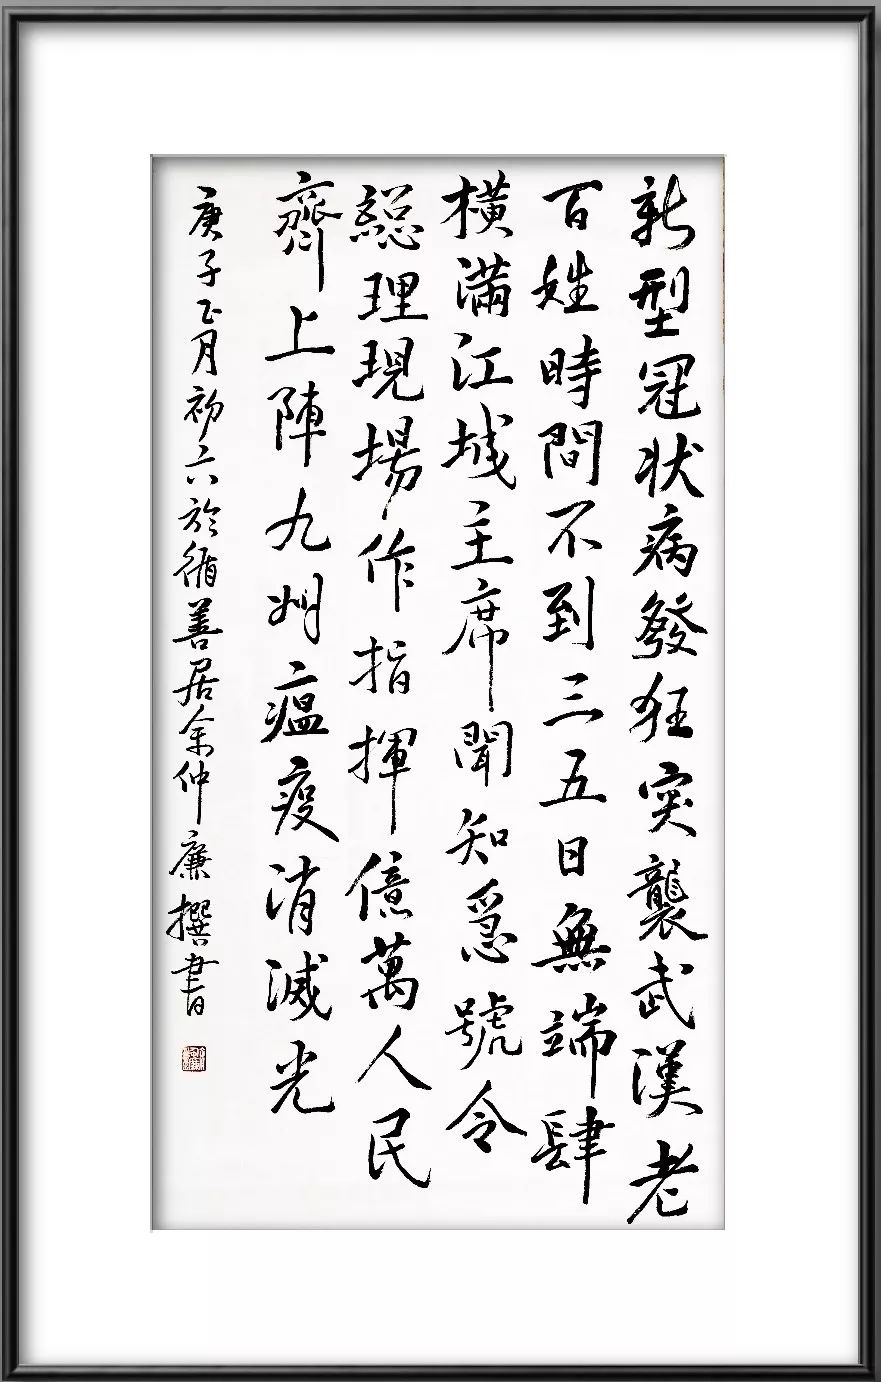 新型冠状病發狂突襲武漢老
百姓時間不到三五日無端肆
橫滿江城主席聞知急號令
總理現場作指揮億萬人民
齊上陣九州瘟疫消滅光
庚子正月初六於循善居余仲廉撰書